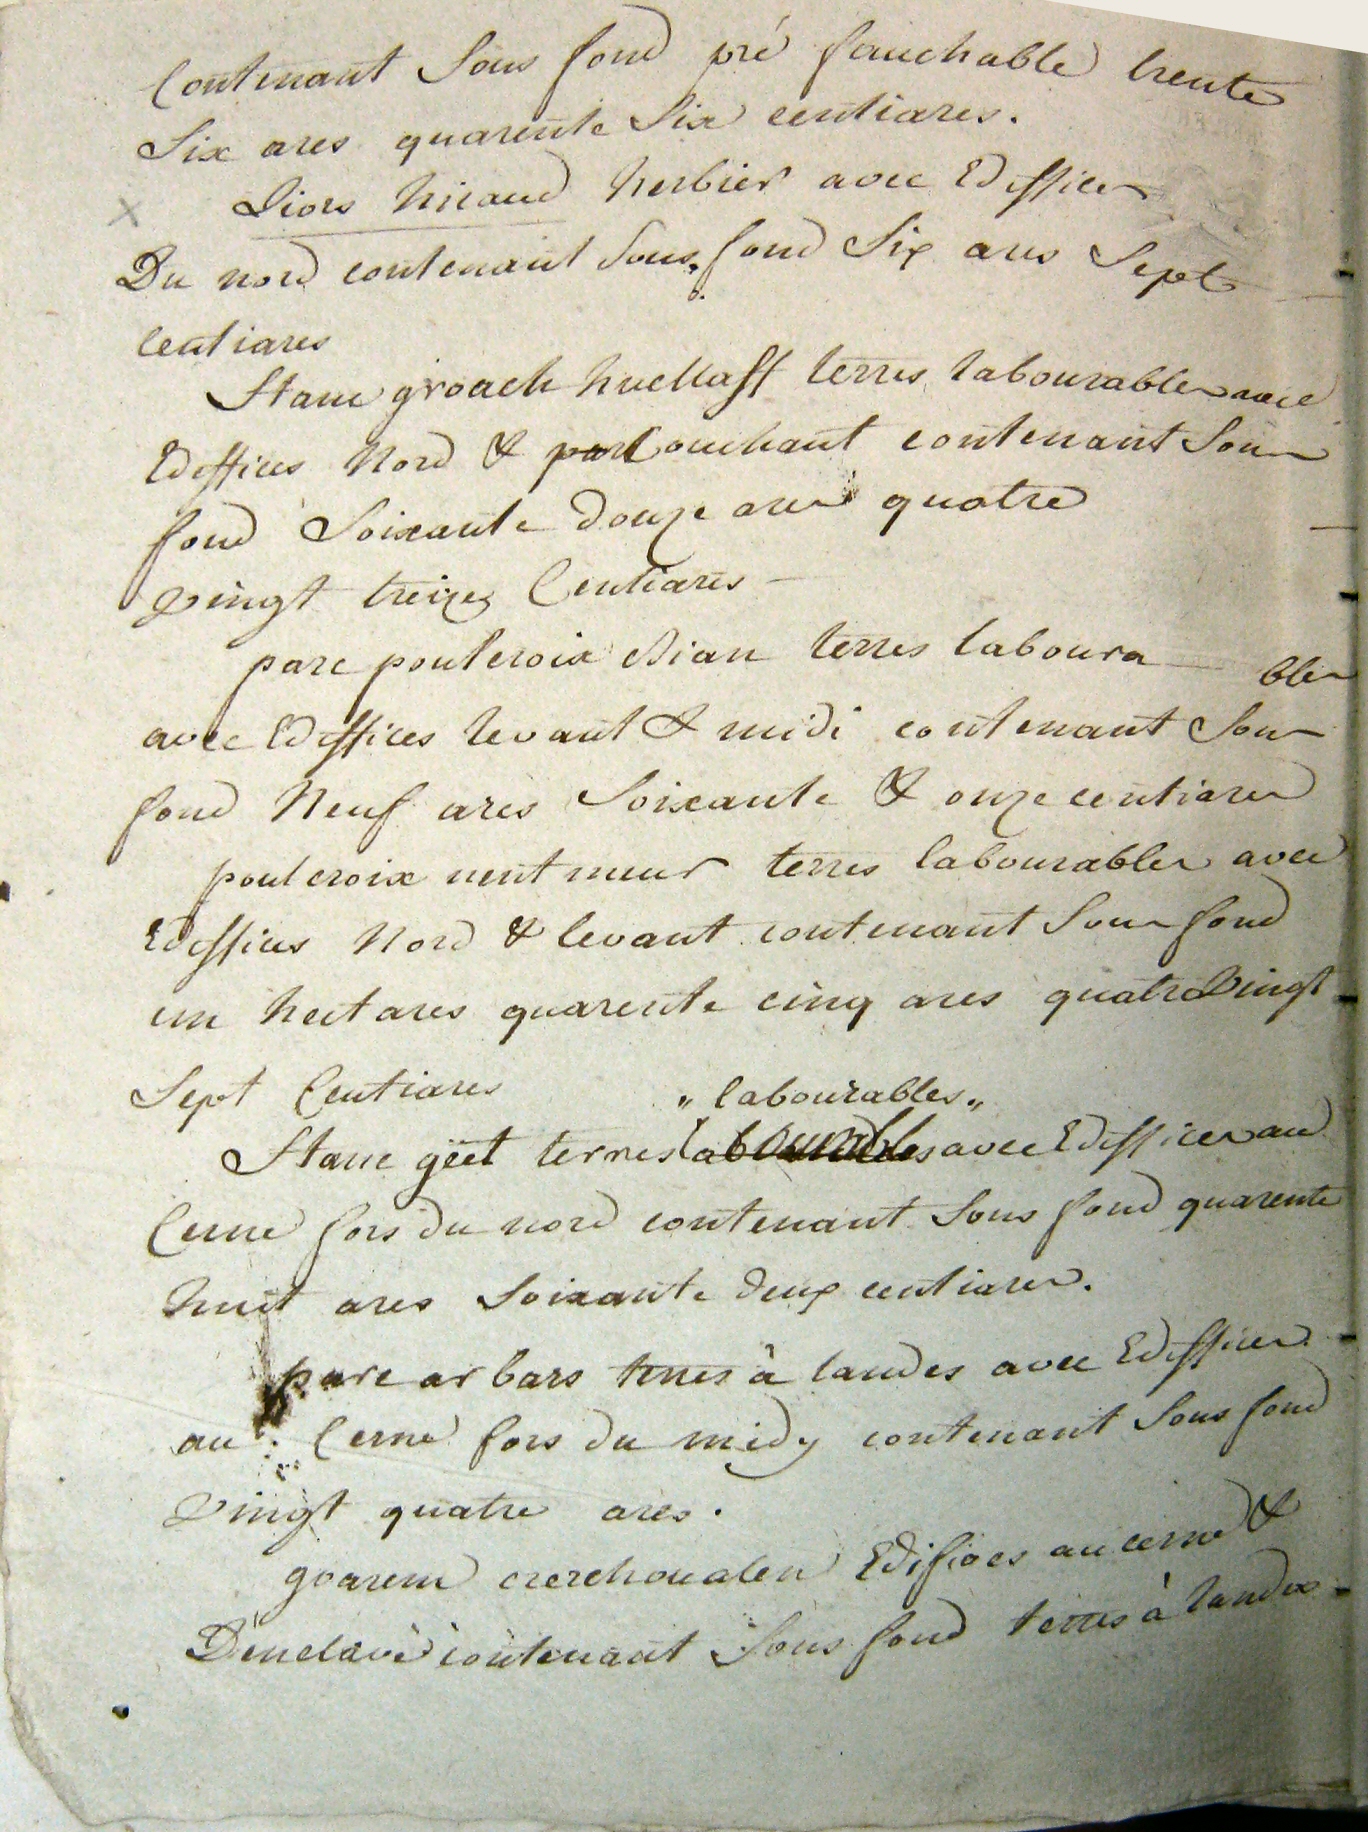 Contenant Sous fond pré fauchable trente
Six ares quarente Six centiares.
Liors hicaud herbier avec Ediffices
Du nord contenant Sous fond Six ares Sept
Centiares
Stanc groach huellaff terres labourables avec
Ediffices Nord & Couchant contenant Sous
fond Soixante douze ares quatre
vingt treize Centiares
parc poulcroix bian terres laboura bles
avec Ediffices levant & midi contenant Sous
fond Neuf ares Soixante & onze centiares
poulcroix nent meur terres labourables avec
Ediffices Nord & levant contenant Sous fond
un hectares quarente cinq ares quatre vingt
Sept Centiares
„ labourables „
Stanc geet terres labourables avec Ediffices au
Cerne fors du nord contenant Sous fond quarente
huit ares Soixante deux centiares.
parc ar bars terres à landes avec Ediffices
au Cerne fors du midy contenant Sous fond
vingt quatre ares.
goarem crerchoualen Edifices au cerne &
D'enclavé contenant Sous fond terres à landes